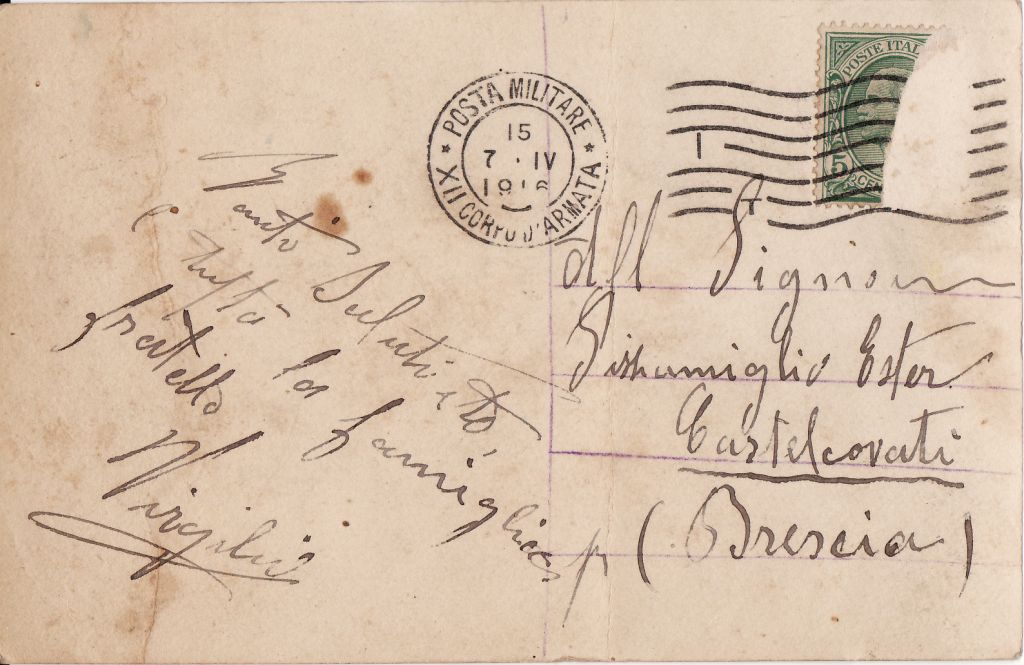 POSTA MILITARE
XII CORPO D'ARMATA
15
7 · IV
POSTE ITAL
5
Saluti
e tutta la famiglia
fratello
Virgilio
All Signora
Ester
Castelcovati
(Brescia)